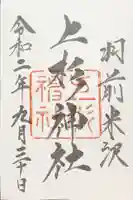 羽前米沢
上杉神社
令和二年九月三十日